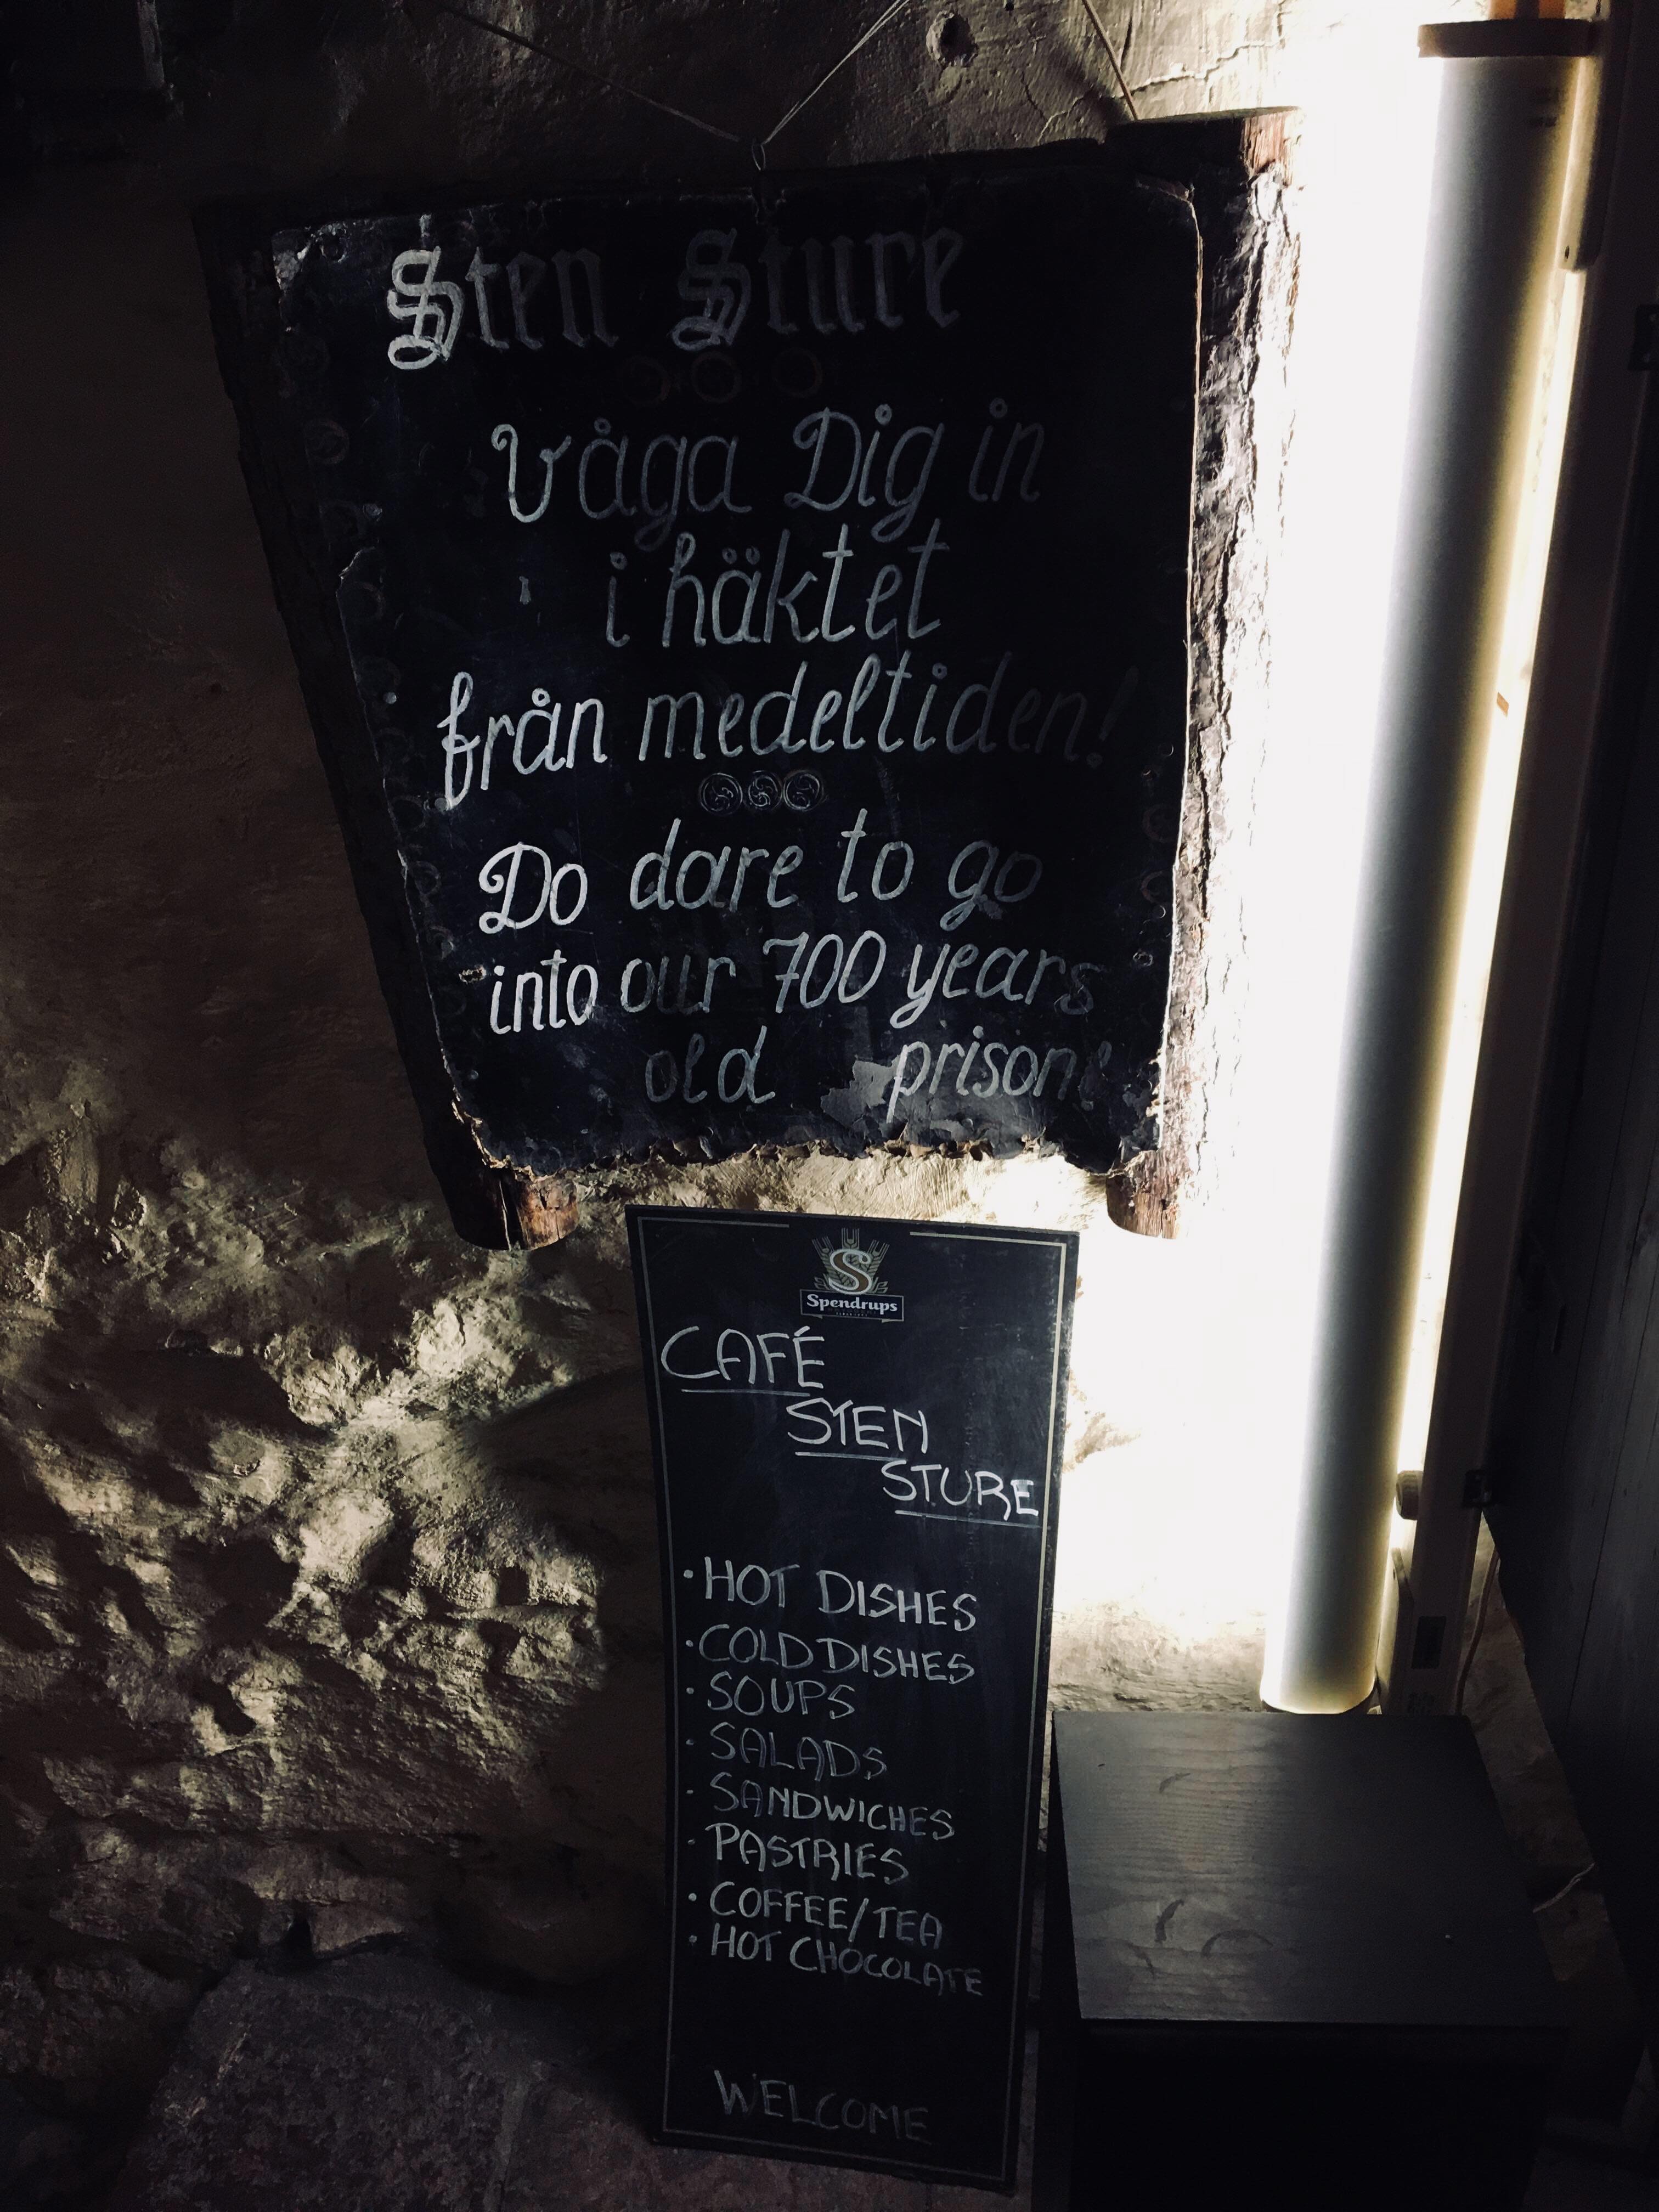 Sten Sture
Våga Dig in
i häktet
från medeltiden!
Do dare to go
into our 700 years
old prison!
S
Spendrups
CAFÉ
STEN
STURE
· HOT DISHES
· COLD DISHES
· SOUPS
· SALADS
· SANDWICHES
· PASTRIES
· COFFEE/TEA
· HOT CHOCOLATE
WELCOME